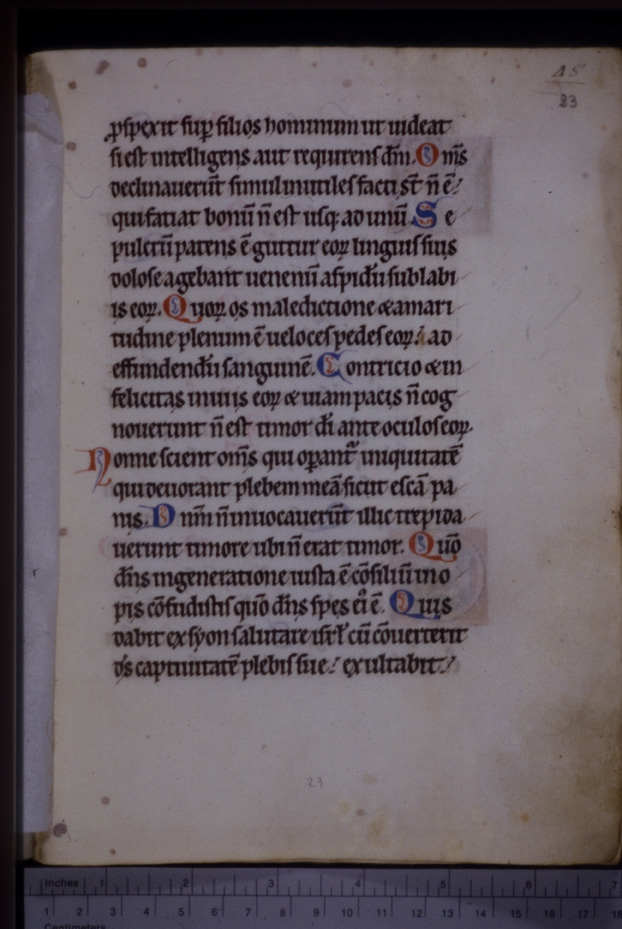 45
23
ꝓspexit sup̱ filios hominum ut uideat
si est intelligens aut requirens dm̄. Om̄s
declinauerūt simul inutiles facti st̄ n̄ ē
qui faciat bonū n̄ est usq; ad unū. Se
pulcrū patens ē guttur eoꝝ linguis suis
dolose agebant uenenū aspidū sub labi
is eoꝝ. Quoꝝ os maledictione & amari
tudine plenum ē ueloces pedes eoꝝ ad
effundendū sanguinē. Contricio & in
felicitas in uiis eoꝝ & uiam pacis n̄ cog
nouerunt n̄ est timor dī ante oculos eoꝝ.
Nonne scient om̄s qui oꝑant᷑ iniquitatē
qui deuorant plebem meā sicut escā pa
nis. Dnm̄ n̄ inuocauerūt illic trepida
uerunt timore ubi n̄ erat timor. Quō
dn̄s in generatione iusta ē cōsiliū ino
pis cōfudistis quō dn̄s spes eı᷒ ē. Quis
dabit ex syon salutare isrł cū cōuerterit
ds̄ captiuitatē plebis sue exultabit
23
Inches 1 2 3 4 5 6 7
1 2 3 4 5 6 7 8 9 10 11 12 13 14 15 16 17 18
Centimeters